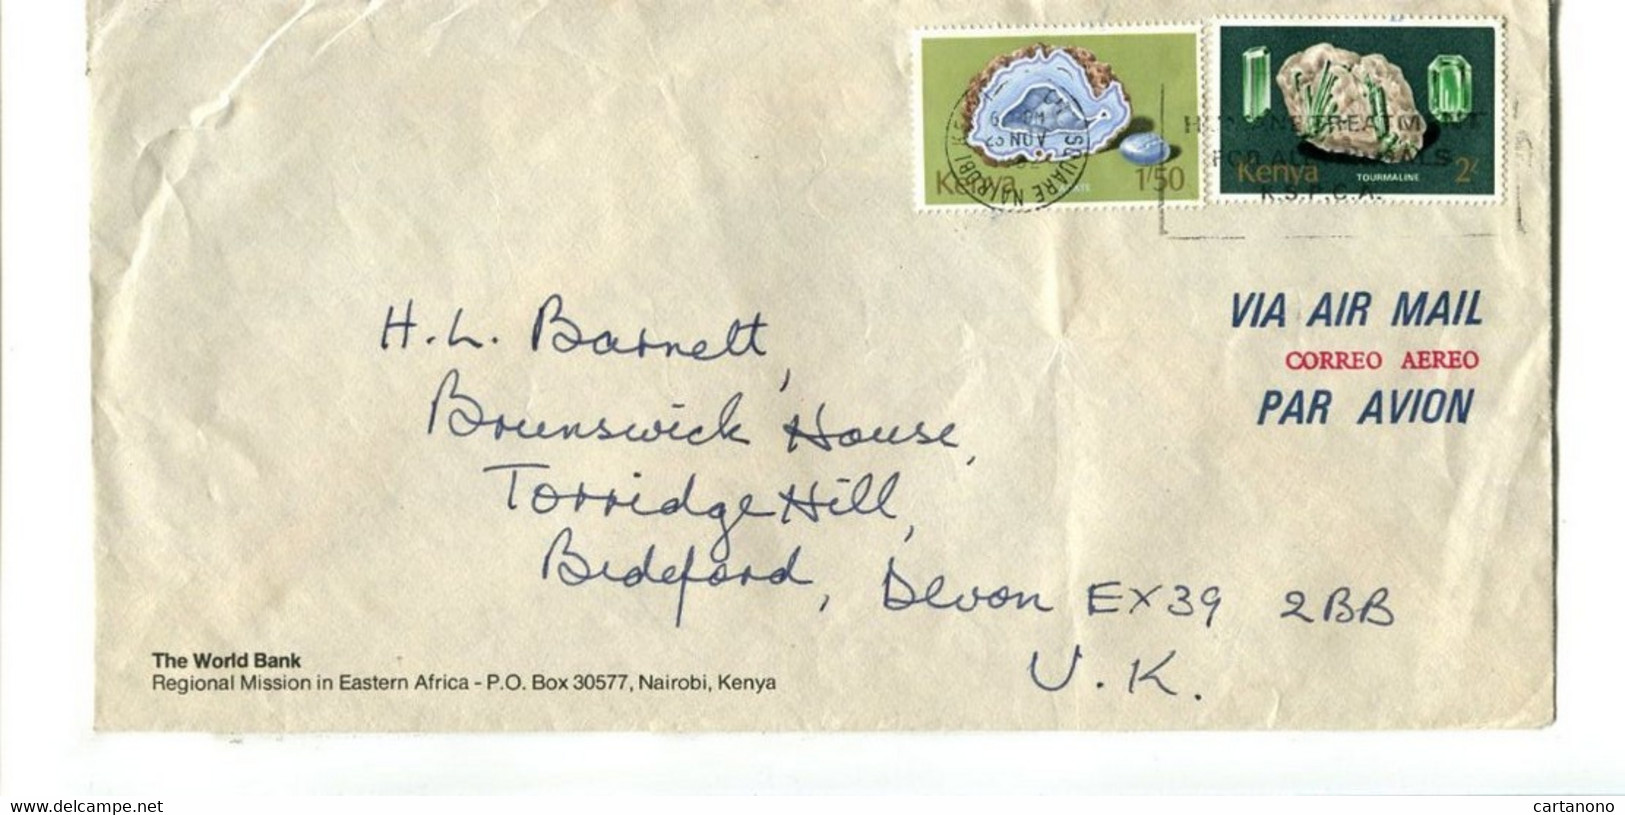 Kenya 1'50
Kenya TOURMALINE 2/-
PM
23 NOV
SQUARE NAIROBI
TREATMENT
FOR ALL ANIMALS
K.S.P.C.A.
VIA AIR MAIL
CORREO AEREO
PAR AVION
H. L. Barnett,
Brunswick House,
Torridge Hill,
Bideford, Devon EX39 2BB
U.K.
The World Bank
Regional Mission in Eastern Africa - P.O. Box 30577, Nairobi, Kenya
www.delcampe.net
cartanono